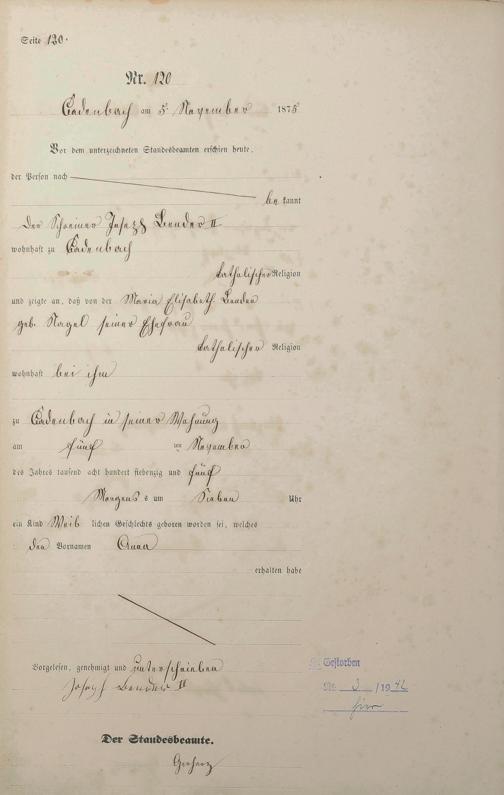 Seite 120.
Nr. 120
Cadenbach am 5 November 1875
Vor dem unterzeichneten Standesbeamten erschien heute,
der Person nach
be kannt
der Schreiner Joseph Bender II
wohnhaft zu Cadenbach
katholischer Religion
und zeigte an, daß von der Maria Elisabeth Bender
geb. Nagel seiner Ehefrau
katholischer Religion
wohnhaft bei ihm
zu Cadenbach in seiner Wohnung
am fünf ten November
des Jahres tausend acht hundert siebenzig und fünf
Morgens s um Sieben Uhr
ein Kind Weib lichen Geschlechts geboren worden sei, welches
den Vornamen Anna
erhalten habe
Vorgelesen, genehmigt und unterschrieben
Joseph Bender II
Der Standesbeamte.
Gestorben
Nr. 3 /1942
hier